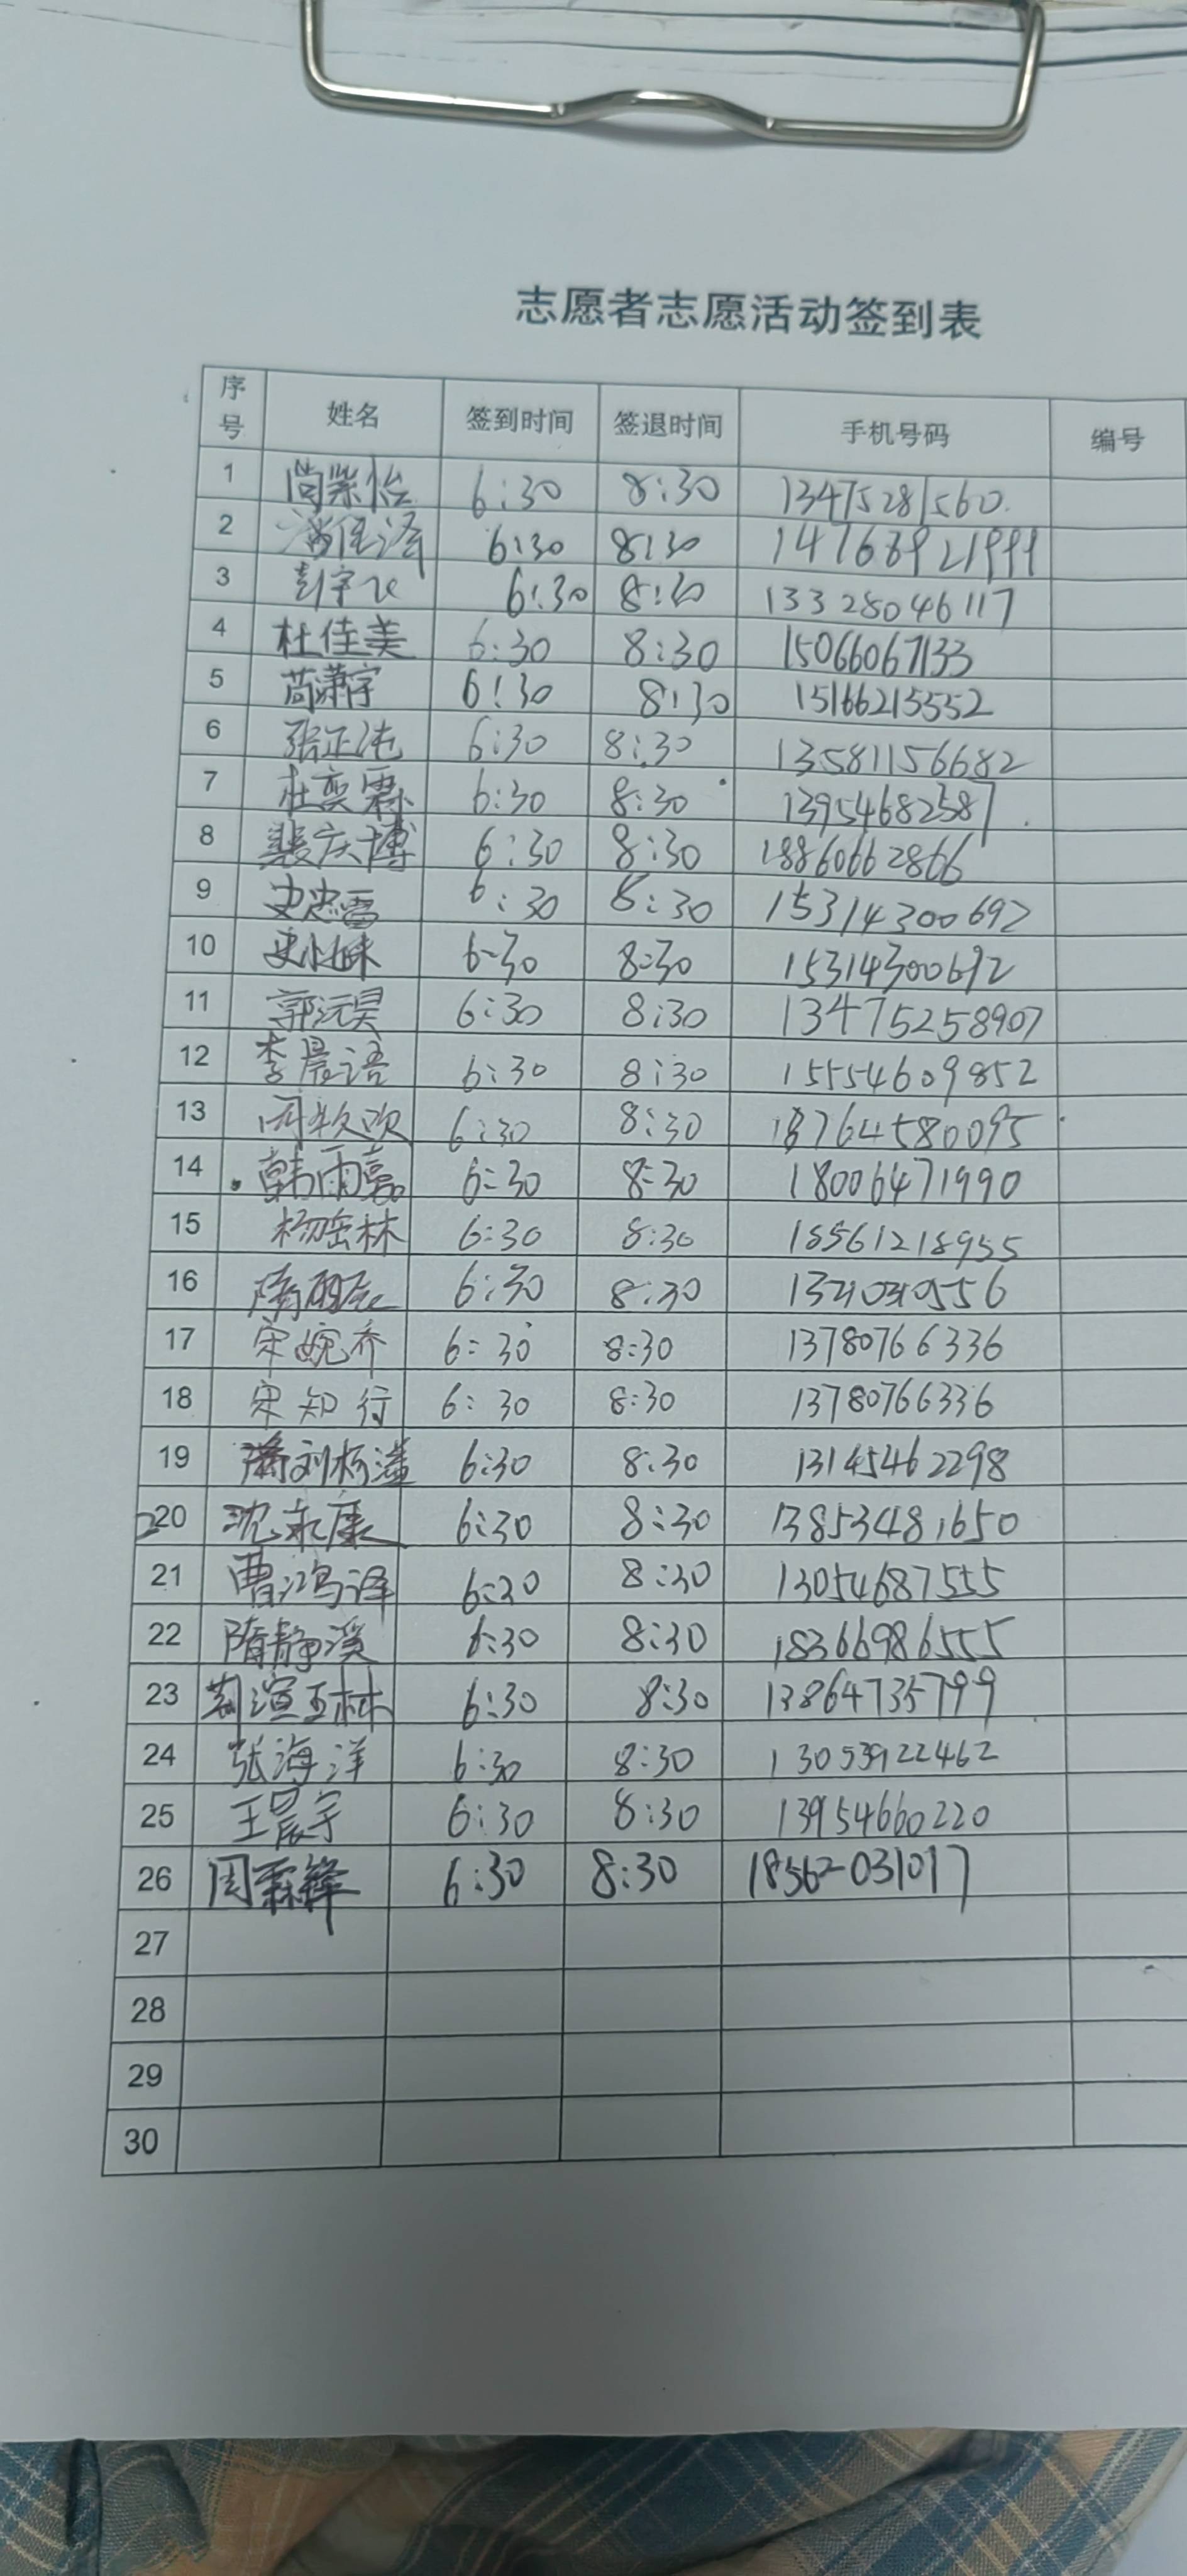 志愿者志愿活动签到表
序号 姓名 签到时间 签退时间 手机号码 编号
1 尚紫怡 6:30 8:30 13475281560
2 6:30 8:30
3 彭宇飞 6:30 8:30 13328046117
4 杜佳美 6:30 8:30 15066067133
5 苟潇宇 6:30 8:30 15166215552
6 张正 6:30 8:30 13581156682
7 杜奕霖 6:30 8:30 13954682387
8 裴庆博 6:30 8:30 18860662866
9 史忠 6:30 8:30 15314300692
10 史小妹 6:30 8:30 15314300692
11 郭沅昊 6:30 8:30 13475258907
12 李晨语 6:30 8:30 15554609852
13 周牧欢 6:30 8:30 13764580095
14 韩雨嘉 6:30 8:30 18006471990
15 杨岳林 6:30 8:30 18561218955
16 隋 6:30 8:30
17 宋婉乔 6:30 8:30 13780766336
18 宋知行 6:30 8:30 13780766336
19 刘杨溢 6:30 8:30 13145462298
20 沈永康 6:30 8:30 13853481650
21 曹鸿泽 6:30 8:30 13054687555
22 隋静溪 6:30 8:30 18366986555
23 荆渲玉林 6:30 8:30 13864735799
24 张海洋 6:30 8:30 13053922462
25 王晨宇 6:30 8:30 13954660220
26 周霖锋 6:30 8:30 18562031017
27
28
29
30